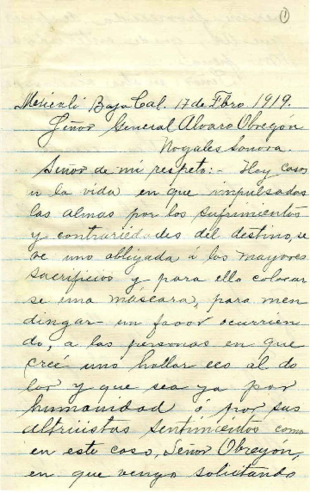 1
Mexicali Baja Cal. 17 de Fbro 1919.
Señor General Alvaro Obregón
Nogales Sonora.
Señor de mi respeto:- Hay casos
n la vida en que impulsadas
las almas por los sufrimientos
y contrariedades del destino, se
ve uno obligada á los mayores
sacrificios y para ello colocar
se una máscara, para men
dingar un favor ocurrien
do, a las personas en que
creé uno hallar eco al do
lor y que sea ya por
humanidad ó por sus
altruistas sentimientos como
en este caso, Señor Obregón,
en que vengo solicitando